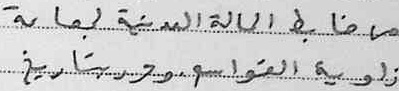 ضابط الحالة المدنية لجماعة
زاوية القواسم وحرر بتاريخ